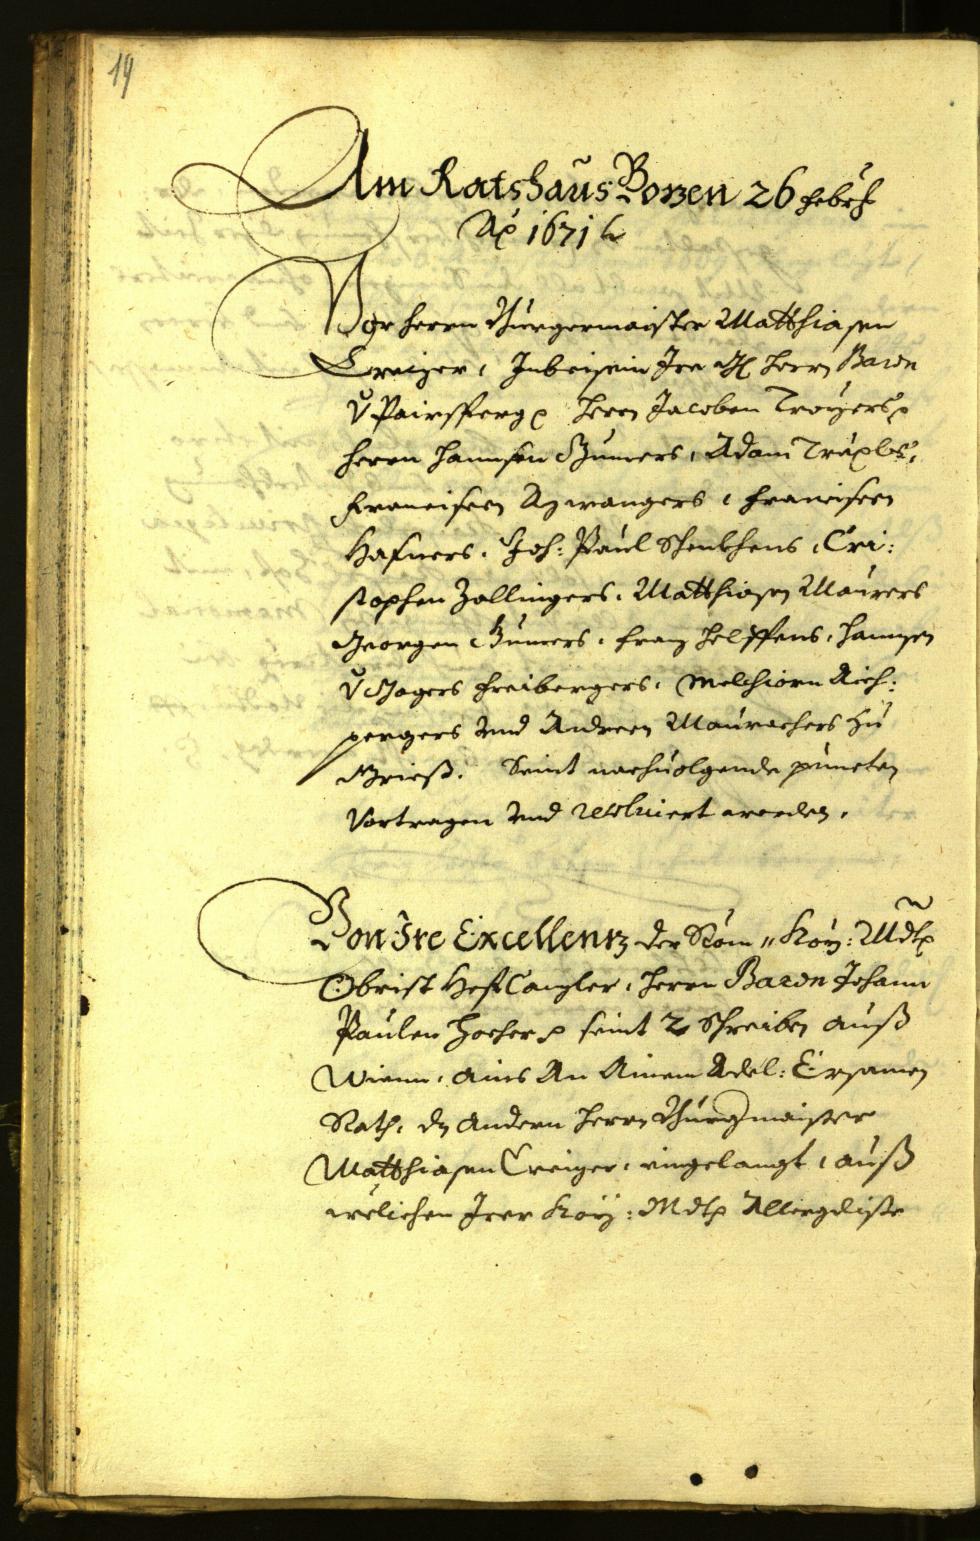 19
Am Ratshaus Bozen 26 Febr:
Aō 1671 
Vor herrn Burgermaister Matthiasen
Creizer, Inbeisein Irr H herrn Baron
v Pairsperg herrn Jacoben Troÿers
herrn Hannsen Gumers, Adam
Francisen Azwangers, Francisen
Hafners, Joh: Paul Schenkhens, Cri:
stophen Zallingers, Matthiasen Maurers
Georgen Gumers, Franz Helffens, Hannsen
v Jagers Freibergers, Melchiorn Aich:
pergers und Andreen Maurachers zu
Grieß. Seint nachuolgende puncten
Vortragen und resoluiert worden.
Von Ire Excellentz der Röm Kaÿ: Mdt
Obrist Hof Canzler, herrn Baron Johann
Paulen Hocher seint 2 Schreiben auß
Wienn, ains An Ainem Adel: Ersamen
Rath, dz andern herrn Burgmaister
Matthiasen Creizer, eingelangt, auß
welichen Irer Kaÿ: Mdt Allergdiste